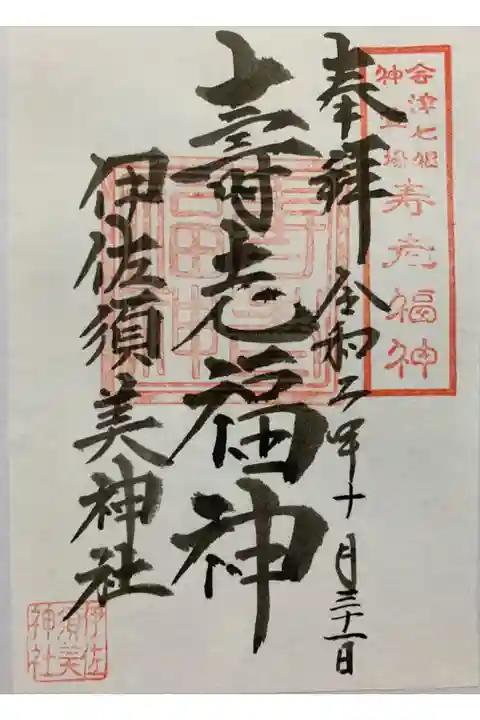 会津七福
神
寿老福神
奉拝
令和二年十月三十一日
壽老福神
伊佐須美神社
伊佐
須美
神社